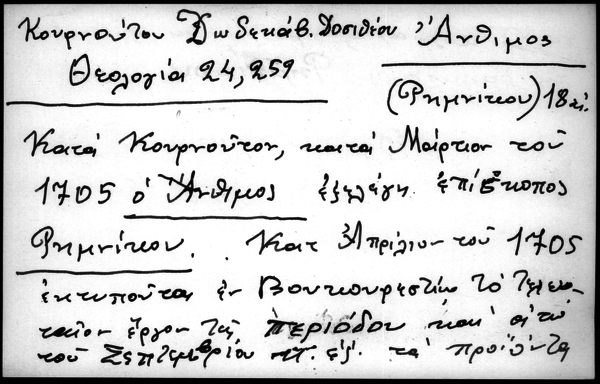 Κουρνούτου Δωδεκάβ. Δοσιθέου Ἄνθιμος
Θεολογία 24, 259
(Ρημνίκου) 18 αἰ.
Κατά Κουρνοῦτον, κατά Μάρτιον τοῦ
1705 ὁ Ἄνθιμος ἐξελέγη ἐπίσκοπος
Ρημνίκου. Κατ Ἀπρίλιον τοῦ 1705
ἐκτυποῦται ἐν Βουκουρεστίῳ τό τελευ-
ταῖον ἔργον τῆς περιόδου καί
τοῦ Σεπτεμβρίου π. ἐξ. τά προϊόντα